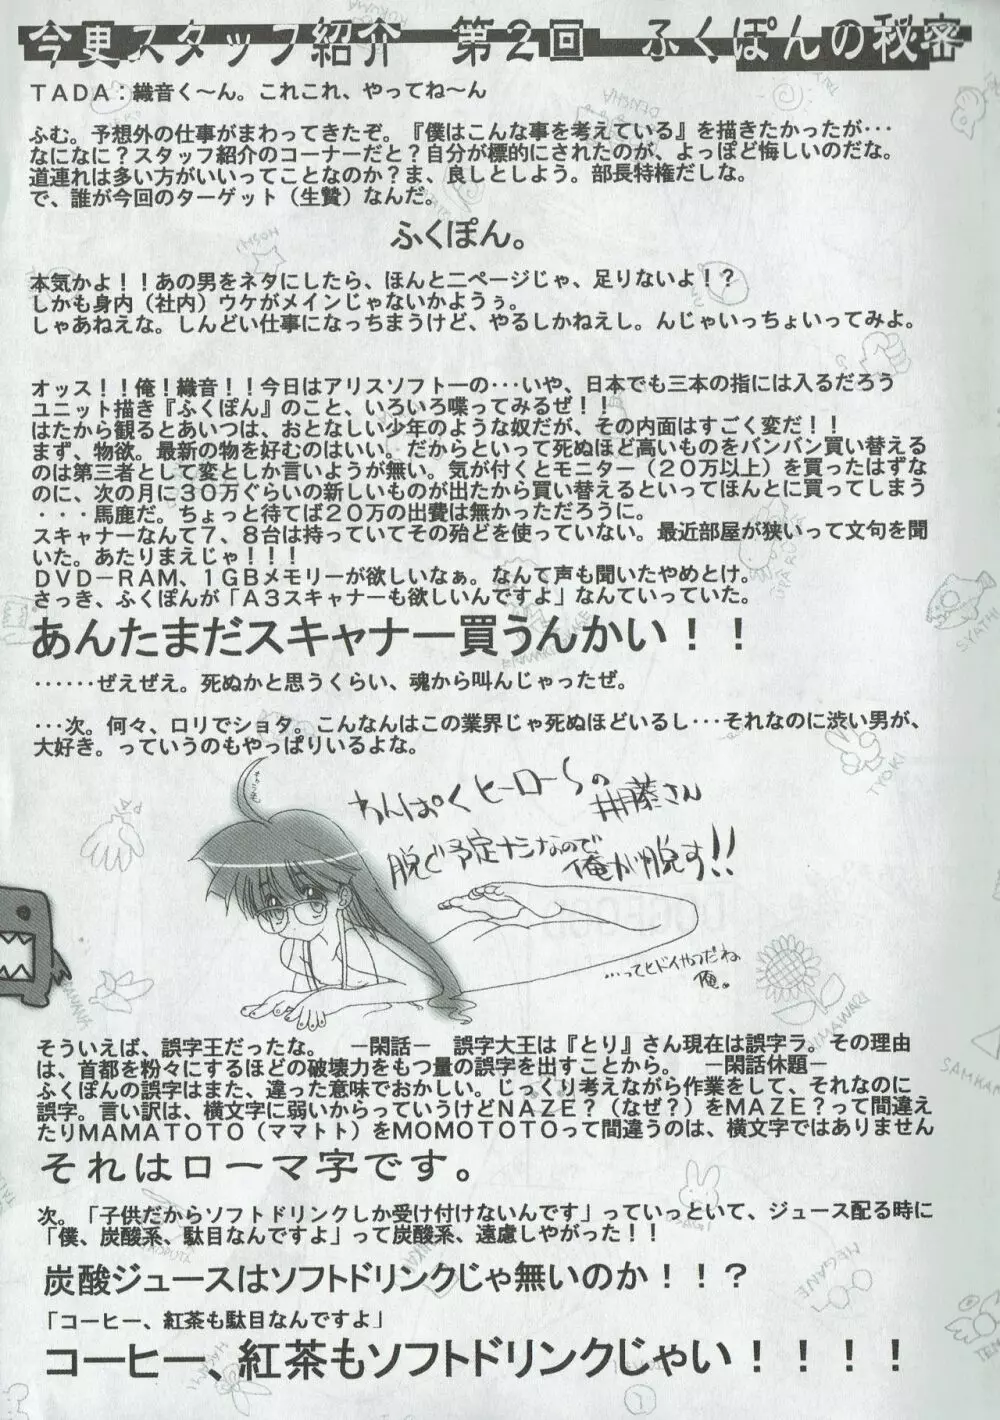 今更スタッフ紹介　第２回　ふくぽんの秘密
ＴＡＤＡ：織音く〜ん。これこれ、やってね〜ん
ふむ。予想外の仕事がまわってきたぞ。『僕はこんな事を考えている』を描きたかったが・・・
なになに？スタッフ紹介のコーナーだと？自分が標的にされたのが、よっぽど悔しいのだな。
道連れは多い方がいいってことなのか？ま、良しとしよう。部長特権だしな。
で、誰が今回のターゲット（生贄）なんだ。
ふくぽん。
本気かよ！！あの男をネタにしたら、ほんと二ページじゃ、足りないよ！？
しかも身内（社内）ウケがメインじゃないかようぅ。
しゃあねえな。しんどい仕事になっちまうけど、やるしかねえし。んじゃいっちょいってみよ。
オッス！！俺！織音！！今日はアリスソフト一の・・・いや、日本でも三本の指には入るだろう
ユニット描き『ふくぽん』のこと、いろいろ喋ってみるぜ！！
はたから観るとあいつは、おとなしい少年のような奴だが、その内面はすごく変だ！！
まず、物欲。最新の物を好むのはいい。だからといって死ぬほど高いものをバンバン買い替える
のは第三者として変としか言いようが無い。気が付くとモニター（２０万以上）を買ったはずな
のに、次の月に３０万ぐらいの新しいものが出たから買い替えるといってほんとに買ってしまう
・・・馬鹿だ。ちょっと待てば２０万の出費は無かっただろうに。
スキャナーなんて７、８台は持っていてその殆どを使っていない。最近部屋が狭いって文句を聞
いた。あたりまえじゃ！！！
ＤＶＤ−ＲＡＭ、１ＧＢメモリーが欲しいなぁ。なんて声も聞いたやめとけ。
さっき、ふくぽんが「Ａ３スキャナーも欲しいんですよ」なんていっていた。
あんたまだスキャナー買うんかい！！
・・・・・・ぜえぜえ。死ぬかと思うくらい、魂から叫んじゃったぜ。
・・・次。何々、ロリでショタ。こんなんはこの業界じゃ死ぬほどいるし・・・それなのに渋い男が、
大好き。っていうのもやっぱりいるよな。
わんぱくヒーロー〜の
井藤さん
脱ぐ予定ナシなので
俺が脱す!!
...ってヒドイやつだね
俺。
そういえば、誤字王だったな。　−閑話−　誤字大王は『とり』さん現在は誤字ラ。その理由
は、首都を粉々にするほどの破壊力をもつ量の誤字を出すことから。　−閑話休題−
ふくぽんの誤字はまた、違った意味でおかしい。じっくり考えながら作業をして、それなのに
誤字。言い訳は、横文字に弱いからっていうけどＮＡＺＥ？（なぜ？）をＭＡＺＥ？って間違え
たりＭＡＭＡＴＯＴＯ（ママトト）をＭＯＭＯＴＯＴＯって間違うのは、横文字ではありません
それはローマ字です。
次。「子供だからソフトドリンクしか受け付けないんです」っていっといて、ジュース配る時に
「僕、炭酸系、駄目なんですよ」って炭酸系、遠慮しやがった！！
炭酸ジュースはソフトドリンクじゃ無いのか！！？
「コーヒー、紅茶も駄目なんですよ」
コーヒー、紅茶もソフトドリンクじゃい！！！！
HOSHI
DENSHA
TYOKI
BANANA
HIMAWARI
MEGANE